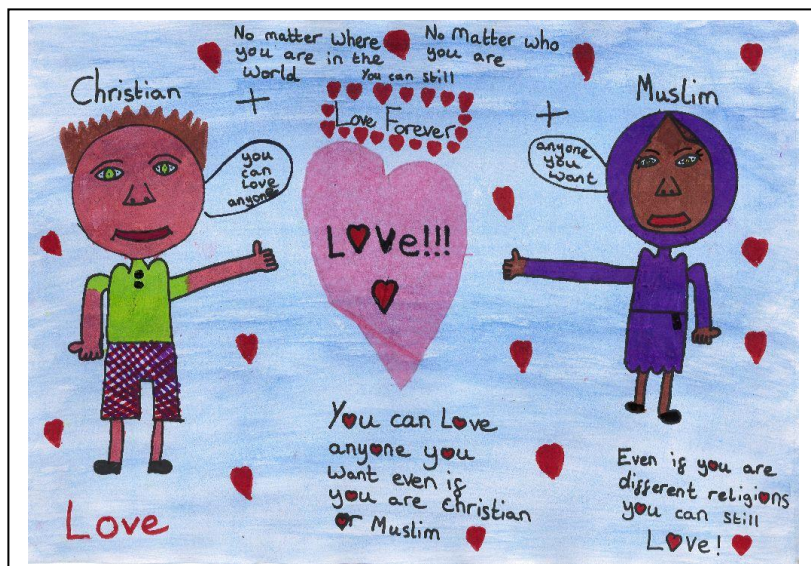 No matter where
you are in the
World
No Matter who
you are
You can still
Love Forever
Christian
+
+
Muslim
you
can
Love
anyone
anyone
you
want
Love!!!
You can Love
anyone you
want even if
you are christian
or Muslim
Even if you are
different religions
you can still
Love!
Love